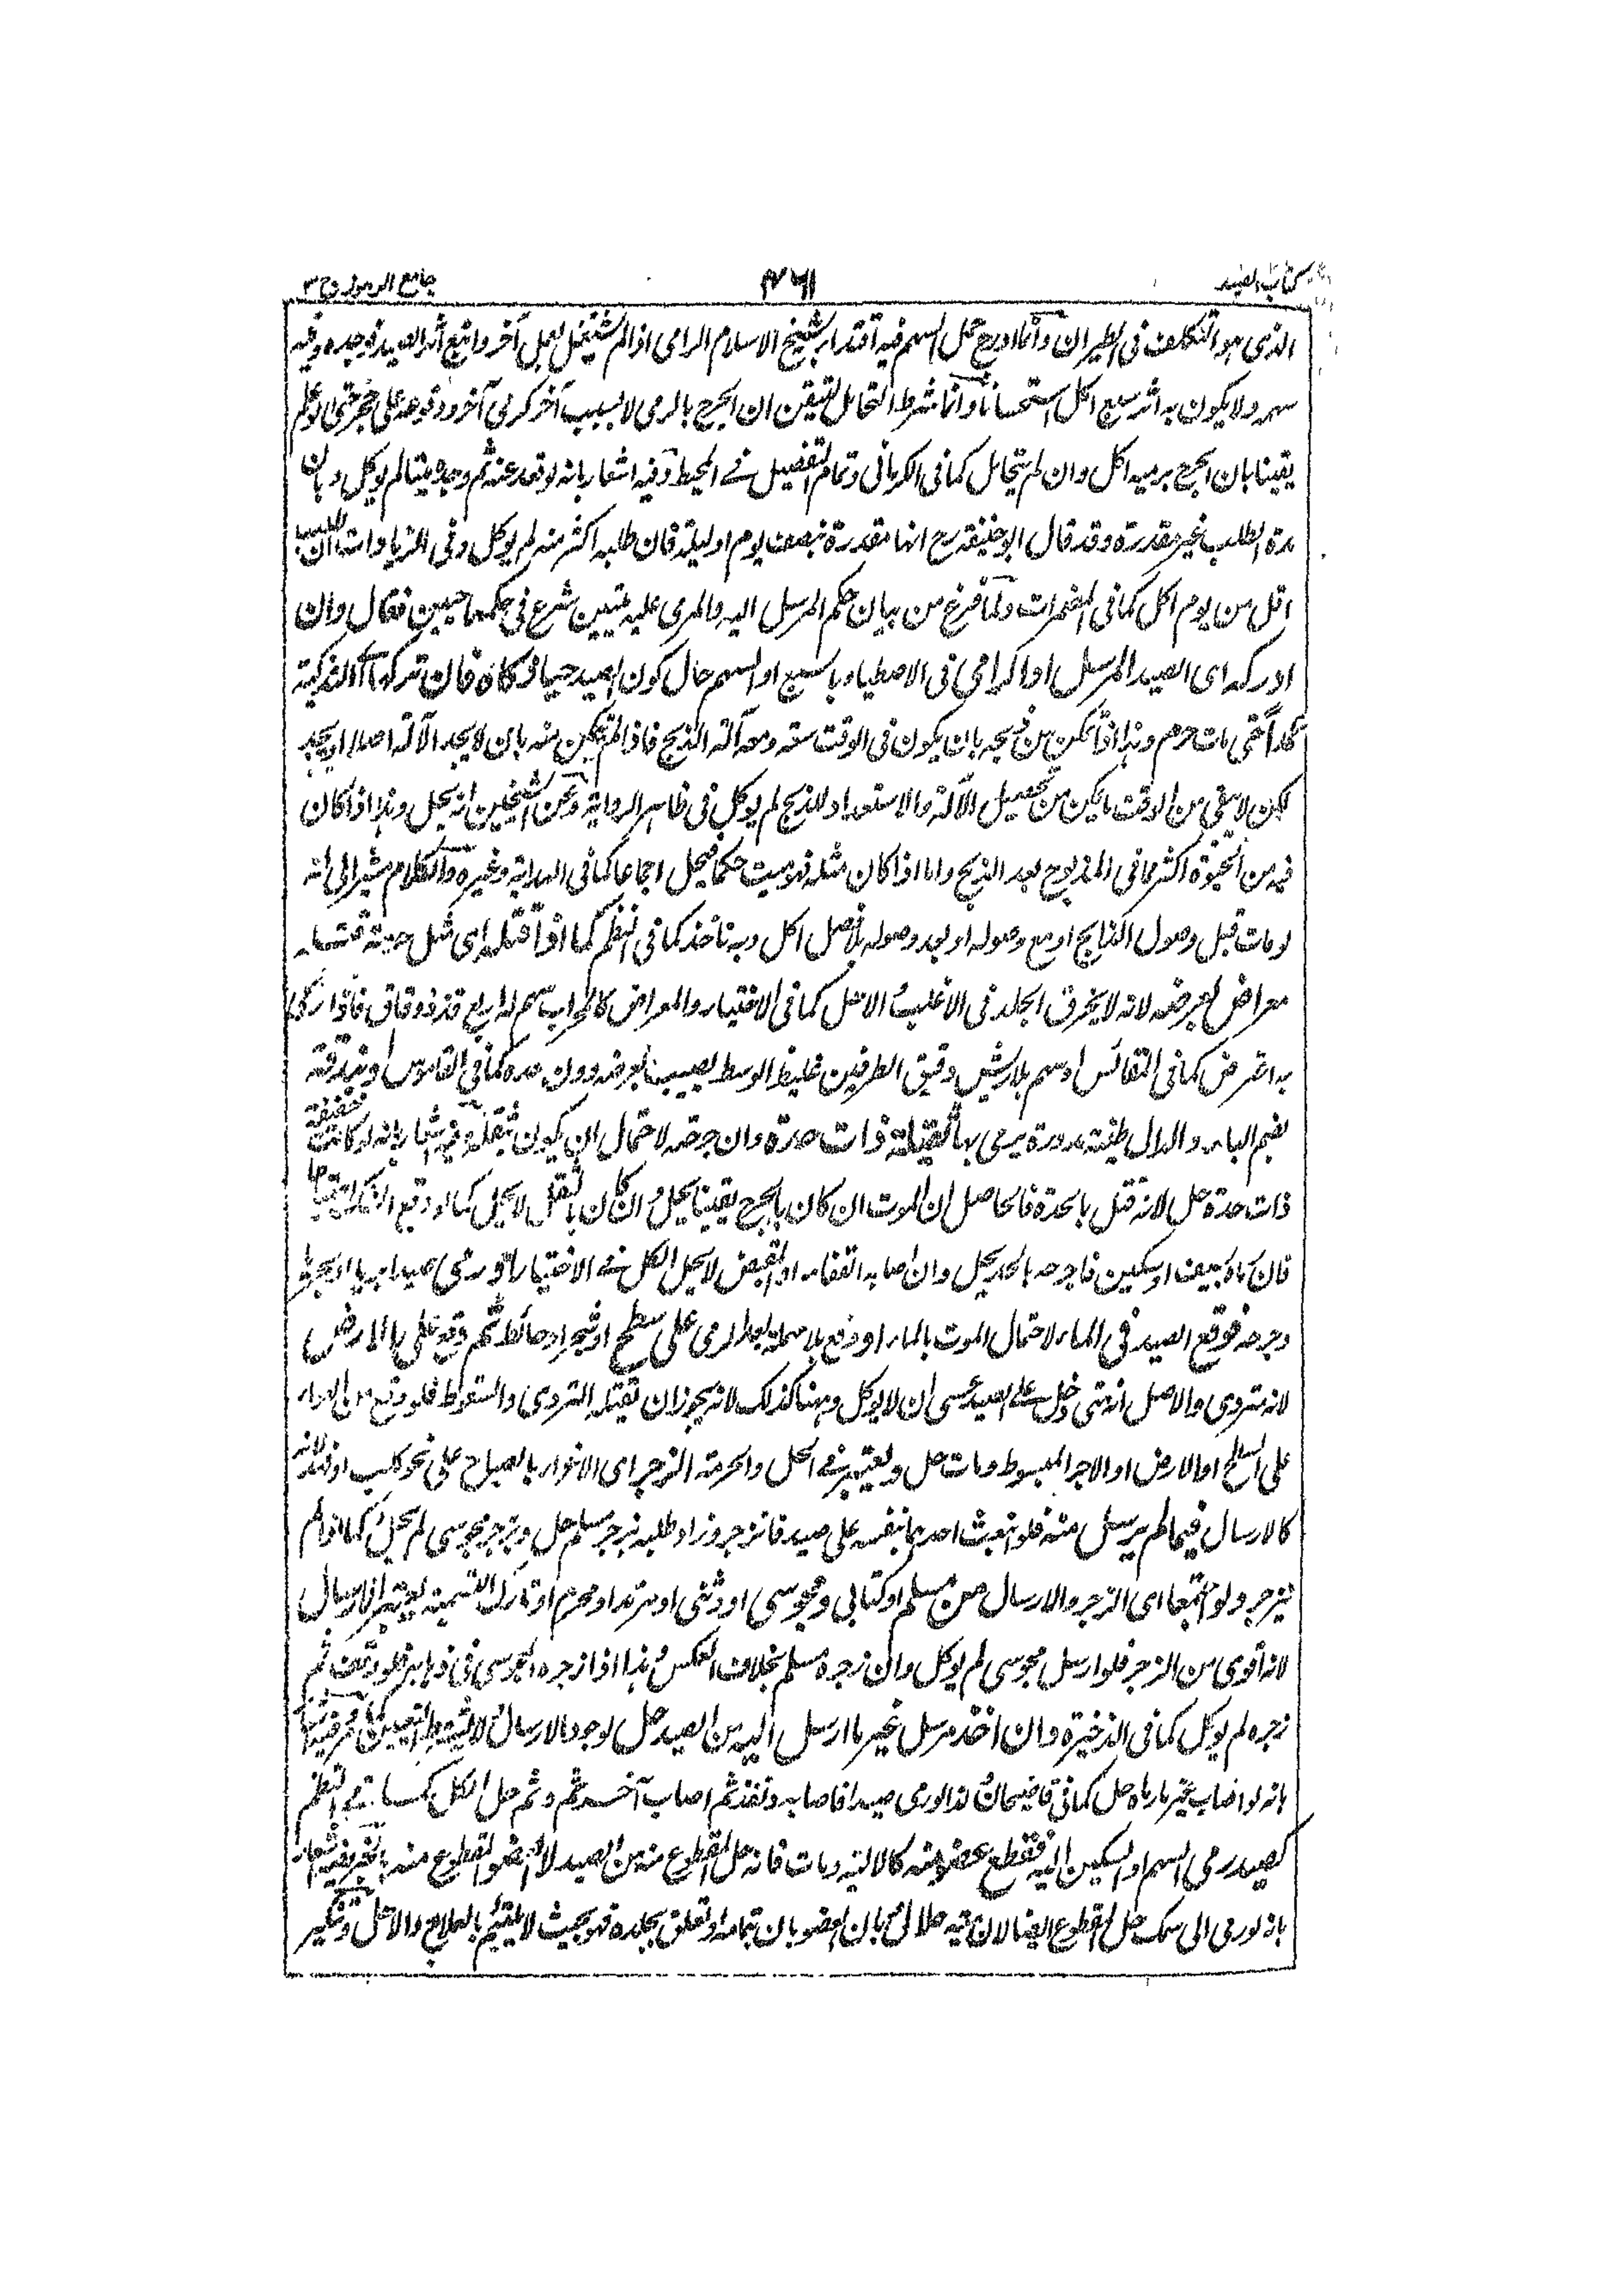 كتاب الصيد ٤٦١ جامع الرموز ج ٣
الذى هو التكلف فى الطيران وانما ادرج حمل السهم فيه اقتداء بشيخ الاسلام الرامى اذا لم يشتغل بعمل آخر واتبع اثر الصيد فوجده وفيه
سهمه ولا يكون به اثر سبع اكل استحسانا وانما شرط التحامل لتيقن ان الجرح بالرمى لا بسبب آخر كرمى آخر ووقوعه على حجر حتى لو علم
يقينا بان الجرح برميه اكل وان لم يتحامل كما فى الكرمانى وتمام التفصيل فے المحيط وفيه اشعار بانه لو قعد عنه ثم وجده ميتا لم يوكل و بان
مدة الطلب غير مقدرة وقد قال ابو حنيفة رح انها مقدرة بنصف يوم او ليلة فان طلبه اكثر منه لم يوكل وفى الزيادات ان الطلب
اقل من يوم اكل كما فى المضمرات ولما فرغ من بيان حكم المرسل اليه والمرمى عليه ميتين شرع فى حكمهما حيين فقال وان
ادركه اى الصيد المرسل او الرامى فى الاصطياد بالسبع او السهم حال كون الصيد حيا ذكاه فان تركها اى التذكية
عمدا حتى مات حرم وهذا اذا تمكن من ذبحه بان يكون فى الوقت سعة ومعه آلة الذبح فاذا لم يتمكن منه بان لا يجد الآلة اصلا او يجد
لكن لا يبقى من الوقت ما يمكن من تحصيل الآلة والاستعداد للذبح لم يوكل فى ظاهر الرواية وعن الشيخين انه يحل وهذا اذا كان
فيه من الحيوة اكثر مما فى المذبوح بعد الذبح واما اذا كان مثله فهو ميت حكما فيحل اجماعا كما فى الهداية وغيره والكلام مشير الى انه
لو مات قبل وصول الذابح او مع وصوله او بعد وصوله بلا فصل اكل وبه ناخذ كما فى النظم كما اذا قتله اى مثل حرمة قتله
معراض بعرضه لانه لا يخرق الجلد فى الاغلب الاصل كما فى الاختيار والمعراض كالمحراب سهم له اربع قذذ دقاق فاذا رمى
به اعترض كما فى المقائس او سهم بلا ريش دقيق الطرفين غليظ الوسط يصيب بعرضه دون حده كما فى القاموس او بندقة
بضم الباء والدال طينة مدورة يرمى بها ثقيلة ذات حدة وان جرحه لاحتمال ان يكون بثقله وفيه اشعار بانه لو كانت خفيفة
ذات حدة حل لانه قتل بالحدة فالحاصل ان الموت ان كان بالجرح يقينا يحل وان كان بالثقل لا يحل كما لو وقع الشك احتياطا
فان رماه بسيف او سكين فاجرحه بالحد يحل وان اصابه القفاء او المقبض لا يحل الكل فے الاختيار او رمى صيدا بريا او بحريا
وجرحه فوقع الصيد فى الماء لاحتمال الموت بالماء او وقع بلا مهملة بعد الرمى على سطح او شجر او حائط ثم وقع على الارض
لانه متردى والاصل انه متى دخل على الصيد عسى ان لا يوكل وههنا كذلك لانه يجوز ان تقتله التردى والسقوط فلو وقع من الهواء
على السطح او الارض او الآجر المبسوط ومات حل ويعتبر فے الحل والحرمة الزجر اى الاغراء بالصياح على نحو كلب او فهد لانه
كالارسال فيما لم يرسل منه فلو انبعث احدهما بنفسه على صيد فانزجر وزاد طلبه بزجر مسلم حل وبزجر مجوسى لم يحل كما اذا لم
ينزجر ولو اجتمعا اى الزجر والارسال من مسلم او كتابى ومجوسى او وثنى او مرتد او محرم او تارك التسمية يعتبر الارسال
لانه اقوى من الزجر فلو ارسل مجوسى لم يوكل وان زجره مسلم بخلاف العكس هذا اذا زجره المجوسى فى ذهابه فلو وقف ثم
زجره لم يوكل كما فى الذخيرة وان اخذ مرسل غير ما ارسل اليه من الصيد حل لوجود الارسال لا يشترط التعيين كما مر وفيه اشعار
بانه لو اصاب غير ما رماه حل كما فى قاضيخان لذا لو رمى صيدا فاصابه ونفذ ثم اصاب آخر ثم وثم حل الكل كما فے النظم
كصيد رمى السهم او السكين اليه فقطع عضو منه كالالية ومات فانه حل المقطوع منه من الصيد لا العضو المقطوع منه بالخبر وفيه اشعار
بانه لو رمى الى سمك حل المقطوع ايضا لان ميته حلال بان العضو بان بتمامه او تعلق بجلده فهو بحيث لا يلتئم بالعلاج والا حل وتنكير